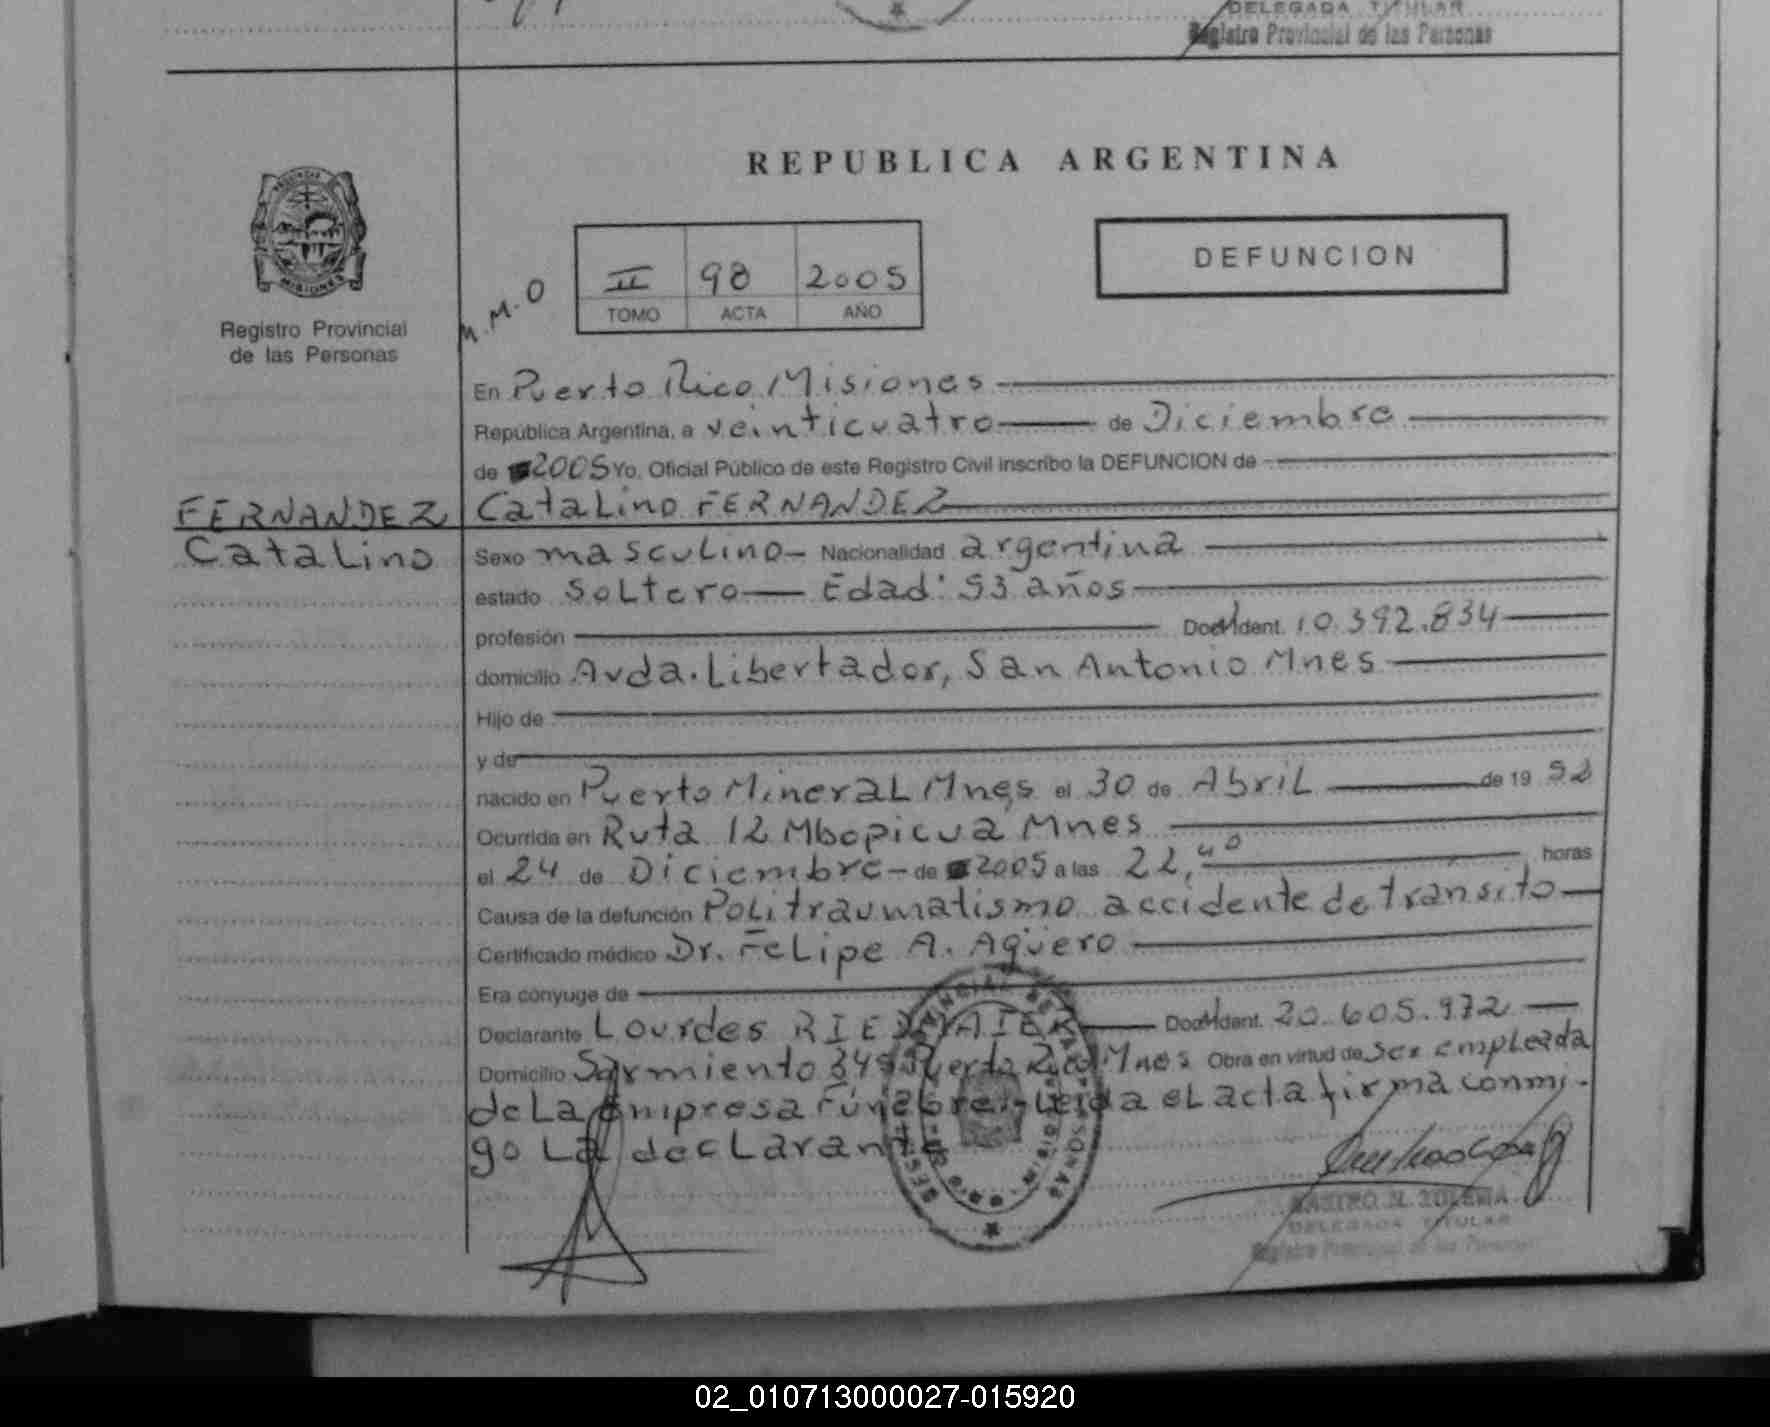 DELEGADA TITULAR
Registro Provincial de las Personas
REPUBLICA ARGENTINA
PROVINCIA
MISIONES
Registro Provincial
de las Personas
M.M.O
II 98 2005
TOMO ACTA AÑO
DEFUNCION
En Puerto Rico Misiones
República Argentina, a veinticuatro de Diciembre
de 2005 Yo, Oficial Público de este Registro Civil inscribo la DEFUNCION de
FERNANDEZ Catalino FERNANDEZ
Catalino Sexo masculino- Nacionalidad argentina
estado Soltero Edad: 53 años
profesión Doc. Ident. 10.392.834
domicilio Avda. Libertador, San Antonio Mnes
Hijo de
y de
nacido en Puerto Mineral Mnes el 30 de Abril de 19 52
Ocurrida en Ruta 12 Mbopicuá Mnes
el 24 de Diciembre- de 2005 a las 22,40 horas
Causa de la defunción Politraumatismo accidente de transito
Certificado médico Dr. Felipe A. Agüero
Era cónyuge de
Declarante Lourdes Doc. Ident. 20.605.972
Domicilio Sarmiento 349 Puerto Rico Mnes Obra en virtud de ser empleada
de la empresa Fúnebre. Leída el acta firma conmi-
go la declarante
CASTRO N. ZULEMA
DELEGADA TITULAR
Registro Provincial de las Personas
02_010713000027-015920